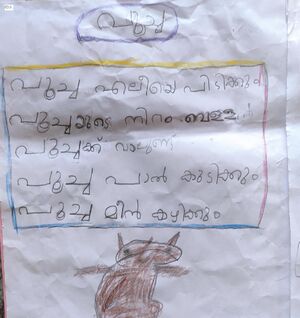 പൂച്ച
പൂച്ച എലിയെ പിടിക്കും
പൂച്ചയുടെ നിറം വെള്ള
പൂച്ചക്ക് വാലുണ്ട്
പൂച്ച പാൽ കുടിക്കും
പൂച്ച മീൻ കഴിക്കും